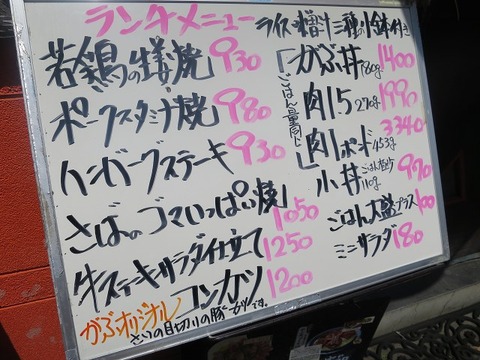 ランチメニュー
ライス 味噌汁 三種の小鉢付き
若鶏の生姜焼 930
ポークスタミナ焼 980
ハンバーグステーキ 930
さばのゴマいっぱい焼 1050
牛ステーキサラダ仕立て 1250
がぶオリジナル
コンカツ 1200
さいの目切りの豚一カツです。
ごはん量同じ
がぶ丼 180g 1400
肉1.5 270g 1990
肉1ポンド 453g 3340
小丼 110g 970
ごはん大盛プラス 100
ミニサラダ 180